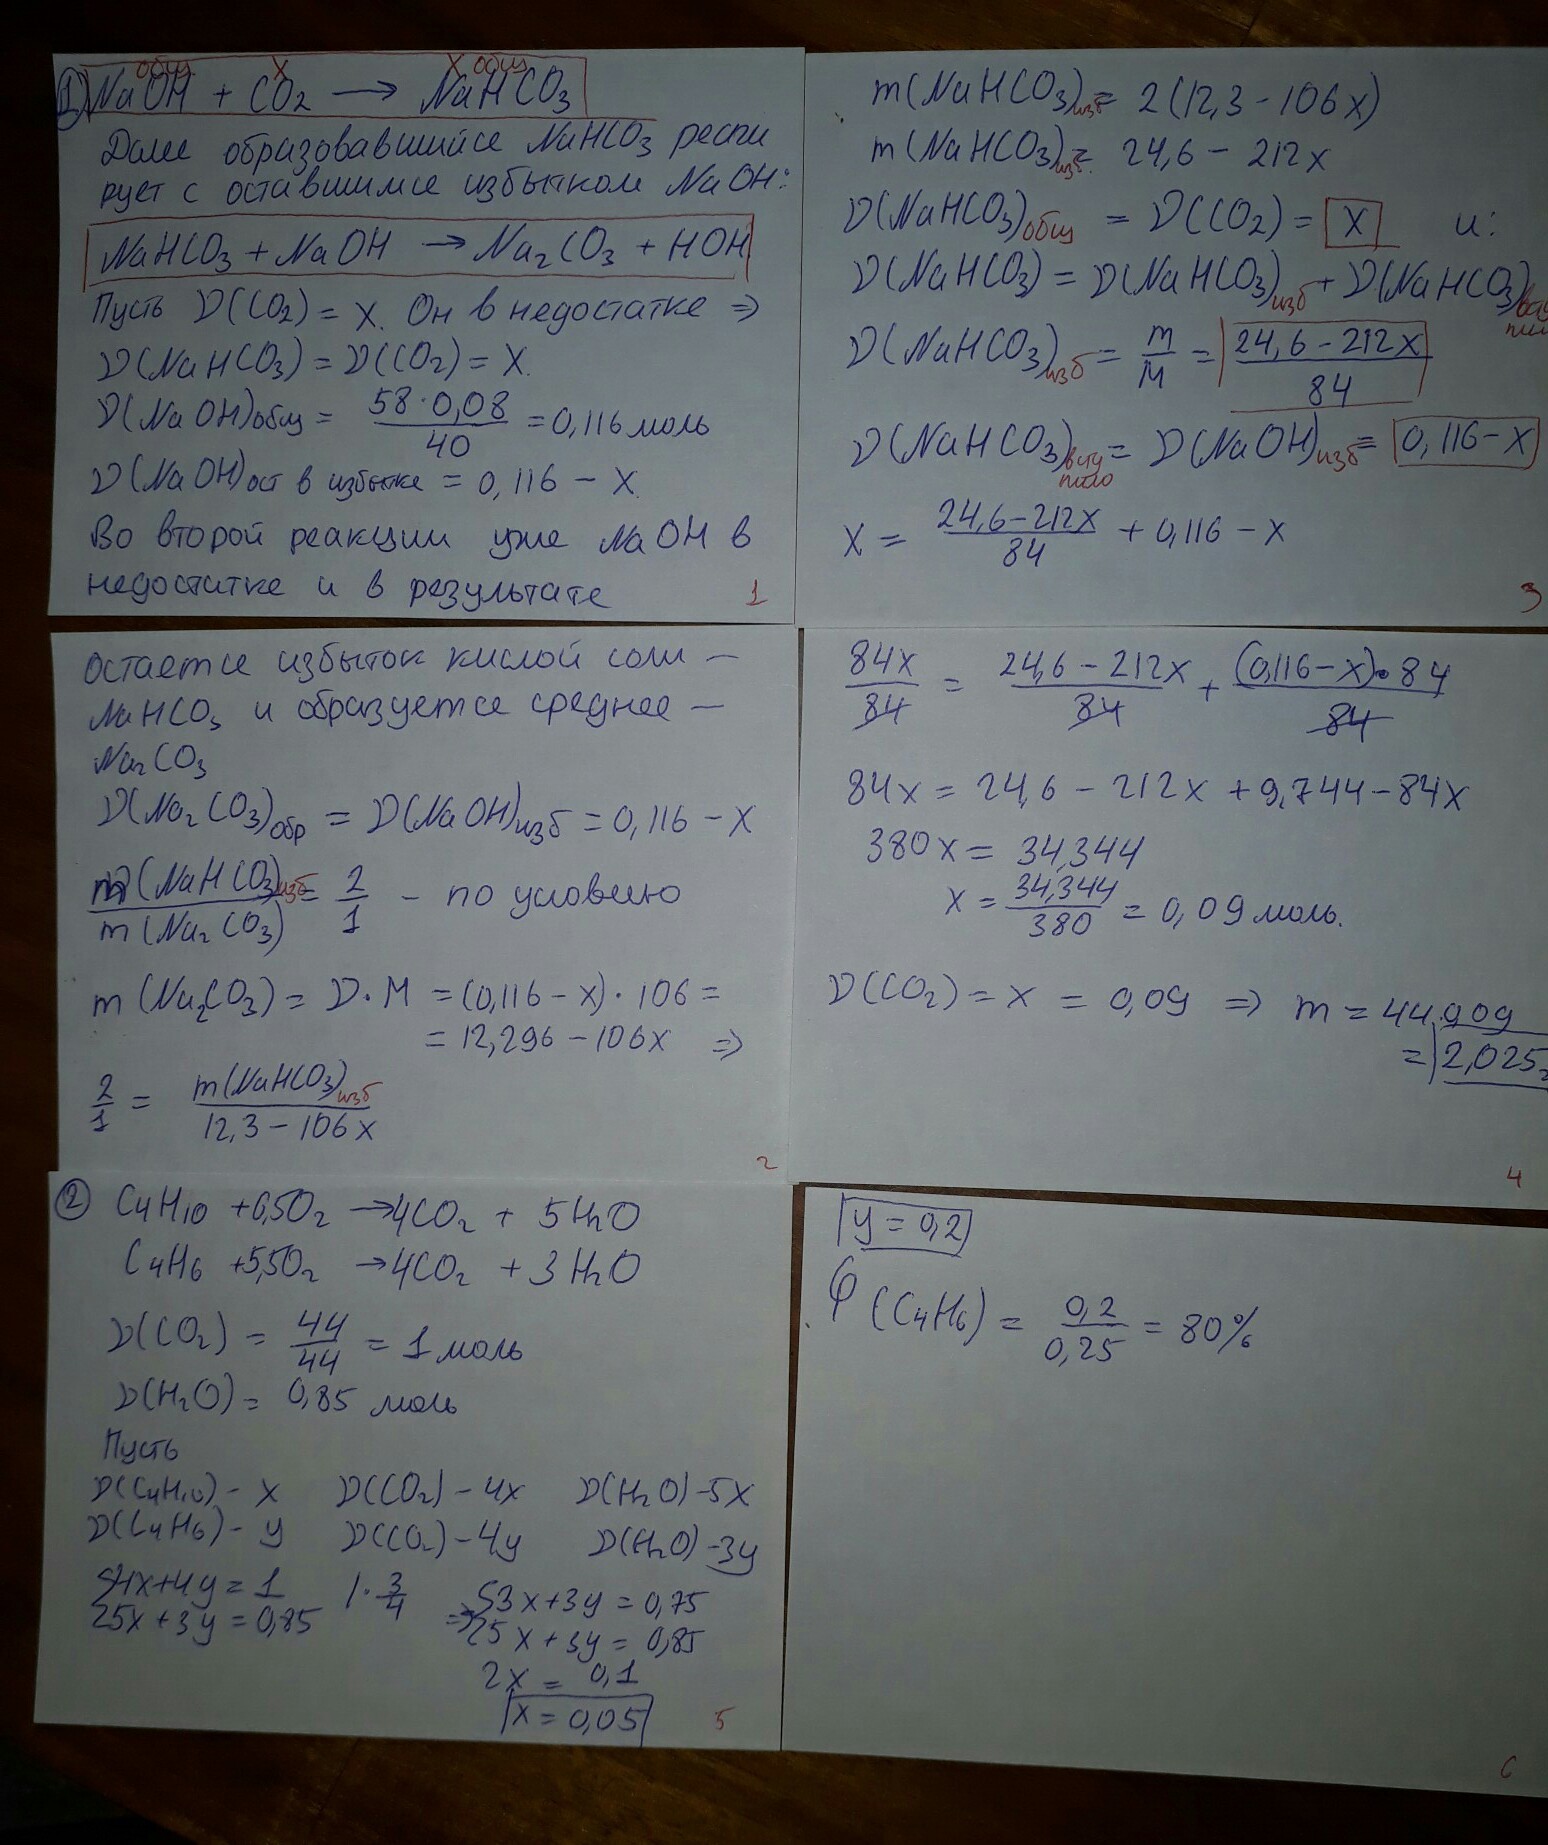 ① NaOH + CO₂ → NaHCO₃
общ x x общ
Далее образовавшийся NaHCO₃ реаги
рует с оставшимся избытком NaOH:
NaHCO₃ + NaOH → Na₂CO₃ + HOH
Пусть ν(CO₂) = x. Он в недостатке ⇒
ν(NaHCO₃) = ν(CO₂) = x.
ν(NaOH)общ = 58·0,08/40 = 0,116 моль
ν(NaOH)ост в избытке = 0,116 – x
Во второй реакции уже NaOH в
недостатке и в результате
1
остается избыток кислой соли –
NaHCO₃ и образуется среднее –
Na₂CO₃
ν(Na₂CO₃)обр = ν(NaOH)изб = 0,116 – x
m(NaHCO₃)изб/m(Na₂CO₃) = 2/1 – по условию
m(Na₂CO₃) = ν·M = (0,116 – x)·106 =
= 12,296 – 106x ⇒
2/1 = m(NaHCO₃)изб/12,3 – 106x
2
m(NaHCO₃)изб = 2(12,3 – 106x)
m(NaHCO₃)изб. = 24,6 – 212x
ν(NaHCO₃)общ = ν(CO₂) = x и:
ν(NaHCO₃) = ν(NaHCO₃)изб + ν(NaHCO₃)
ν(NaHCO₃)изб = m/M = 24,6 – 212x/84
ν(NaHCO₃)вступило = ν(NaOH)изб = 0,116 – x
x = 24,6 – 212x/84 + 0,116 – x
3
84x/84 = 24,6 – 212x/84 + (0,116 – x)·84/84
84x = 24,6 – 212x + 9,744 – 84x
380x = 34,344
x = 34,344/380 = 0,09 моль.
ν(CO₂) = x = 0,09 ⇒ m = 44·0,09
= 2,025г
4
② C₄H₁₀ + 6,5O₂ → 4CO₂ + 5H₂O
C₄H₆ + 5,5O₂ → 4CO₂ + 3H₂O
ν(CO₂) = 44/44 = 1 моль
ν(H₂O) = 0,85 моль
Пусть
ν(C₄H₁₀) – x ν(CO₂) – 4x ν(H₂O) – 5x
ν(C₄H₆) – y ν(CO₂) – 4y ν(H₂O) – 3y
{4x + 4y = 1 |·3/4 ⇒ {3x + 3y = 0,75
{5x + 3y = 0,85 {5x + 3y = 0,85
2x = 0,1
x = 0,05
5
y = 0,2
φ(C₄H₆) = 0,2/0,25 = 80%
6